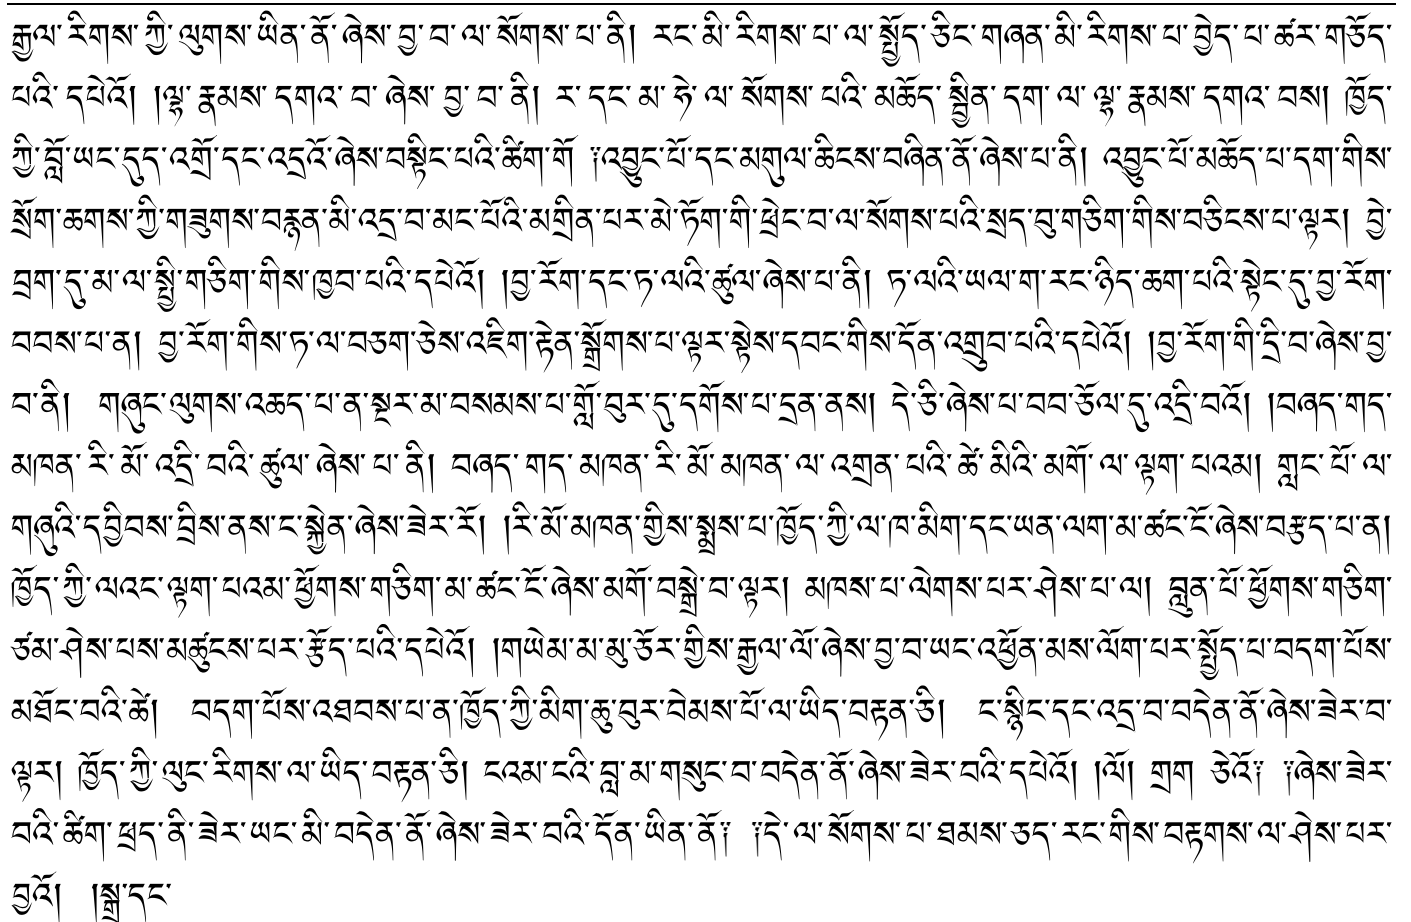 རྒྱལ་རིགས་ཀྱི་ལུགས་ཡིན་ནོ་ཞེས་བྱ་བ་ལ་སོགས་པ་ནི། རང་མི་རིགས་པ་ལ་སྤྱོད་ཅིང་གཞན་མི་རིགས་པ་བྱེད་པ་ཚར་གཅོད་
པའི་དཔེའོ། །ལྷ་རྣམས་དགའ་བ་ཞེས་བྱ་བ་ནི། ར་དང་མ་ཧེ་ལ་སོགས་པའི་མཆོད་སྦྱིན་དག་ལ་ལྷ་རྣམས་དགའ་བས། ཁྱོད་
ཀྱི་བློ་ཡང་དུད་འགྲོ་དང་འདྲའོ་ཞེས་བསྟིང་པའི་ཚིག་གོ ༑འབྱུང་པོ་དང་མགུལ་ཆིངས་བཞིན་ནོ་ཞེས་པ་ནི། འབྱུང་པོ་མཆོད་པ་དག་གིས་
སྲོག་ཆགས་ཀྱི་གཟུགས་བརྙན་མི་འདྲ་བ་མང་པོའི་མགྲིན་པར་མེ་ཏོག་གི་ཕྲེང་བ་ལ་སོགས་པའི་སྲད་བུ་གཅིག་གིས་བཅིངས་པ་ལྟར། བྱེ་
བྲག་དུ་མ་ལ་སྤྱི་གཅིག་གིས་ཁྱབ་པའི་དཔེའོ། །བྱ་རོག་དང་ཏ་ལའི་ཚུལ་ཞེས་པ་ནི། ཏ་ལའི་ཡལ་ག་རང་ཉིད་ཆག་པའི་སྟེང་དུ་བྱ་རོག་
བབས་པ་ན། བྱ་རོག་གིས་ཏ་ལ་བཅག་ཅེས་འཇིག་རྟེན་སྒྲོགས་པ་ལྟར་སྟེས་དབང་གིས་དོན་འགྲུབ་པའི་དཔེའོ། །བྱ་རོག་གི་དྲི་བ་ཞེས་བྱ་
བ་ནི། གཞུང་ལུགས་འཆད་པ་ན་སྔར་མ་བསམས་པ་གློ་བུར་དུ་དགོས་པ་དྲན་ནས། དེ་ཅི་ཞེས་པ་བབ་ཅོལ་དུ་འདྲི་བའོ། །བཞད་གད་
མཁན་རི་མོ་འདྲི་བའི་ཚུལ་ཞེས་པ་ནི། བཞད་གད་མཁན་རི་མོ་མཁན་ལ་འགྲན་པའི་ཚེ་མིའི་མགོ་ལ་ལྟག་པའམ། གླང་པོ་ལ་
གཞུའི་དབྱིབས་བྲིས་ནས་ང་སྐྱེན་ཞེས་ཟེར་རོ། །རི་མོ་མཁན་གྱིས་སྨྲས་པ་ཁྱོད་ཀྱི་ལ་ཁ་མིག་དང་ཡན་ལག་མ་ཚང་ངོ་ཞེས་བརྩད་པ་ན།
ཁྱོད་ཀྱི་ལའང་ལྟག་པའམ་ཕྱོགས་གཅིག་མ་ཚང་ངོ་ཞེས་མགོ་བསྒྲེ་བ་ལྟར། མཁས་པ་ལེགས་པར་ཤེས་པ་ལ། བླུན་པོ་ཕྱོགས་གཅིག་
ཙམ་ཤེས་པས་མཚུངས་པར་རྩོད་པའི་དཔེའོ། །གཡེམ་མ་མུ་ཅོར་གྱིས་རྒྱལ་ལོ་ཞེས་བྱ་བ་ཡང་འཕྱོན་མས་ལོག་པར་སྤྱོད་པ་བདག་པོས་
མཐོང་བའི་ཚེ། བདག་པོས་འཐབས་པ་ན་ཁྱོད་ཀྱི་མིག་ཆུ་བུར་བེམས་པོ་ལ་ཡིད་བརྟན་ཅི། ང་སྙིང་དང་འདྲ་བ་བདེན་ནོ་ཞེས་ཟེར་བ་
ལྟར། ཁྱོད་ཀྱི་ལུང་རིགས་ལ་ཡིད་བརྟན་ཅི། ངའམ་ངའི་བླ་མ་གསུང་བ་བདེན་ནོ་ཞེས་ཟེར་བའི་དཔེའོ། །ལོ། གྲག ཅེའོ༑ ༑ཞེས་ཟེར་
བའི་ཚིག་ཕྲད་ནི་ཟེར་ཡང་མི་བདེན་ནོ་ཞེས་ཟེར་བའི་དོན་ཡིན་ནོ༑ ༑དེ་ལ་སོགས་པ་ཐམས་ཅད་རང་གིས་བརྟགས་ལ་ཤེས་པར་
བྱའོ། །སྒྲ་དང་